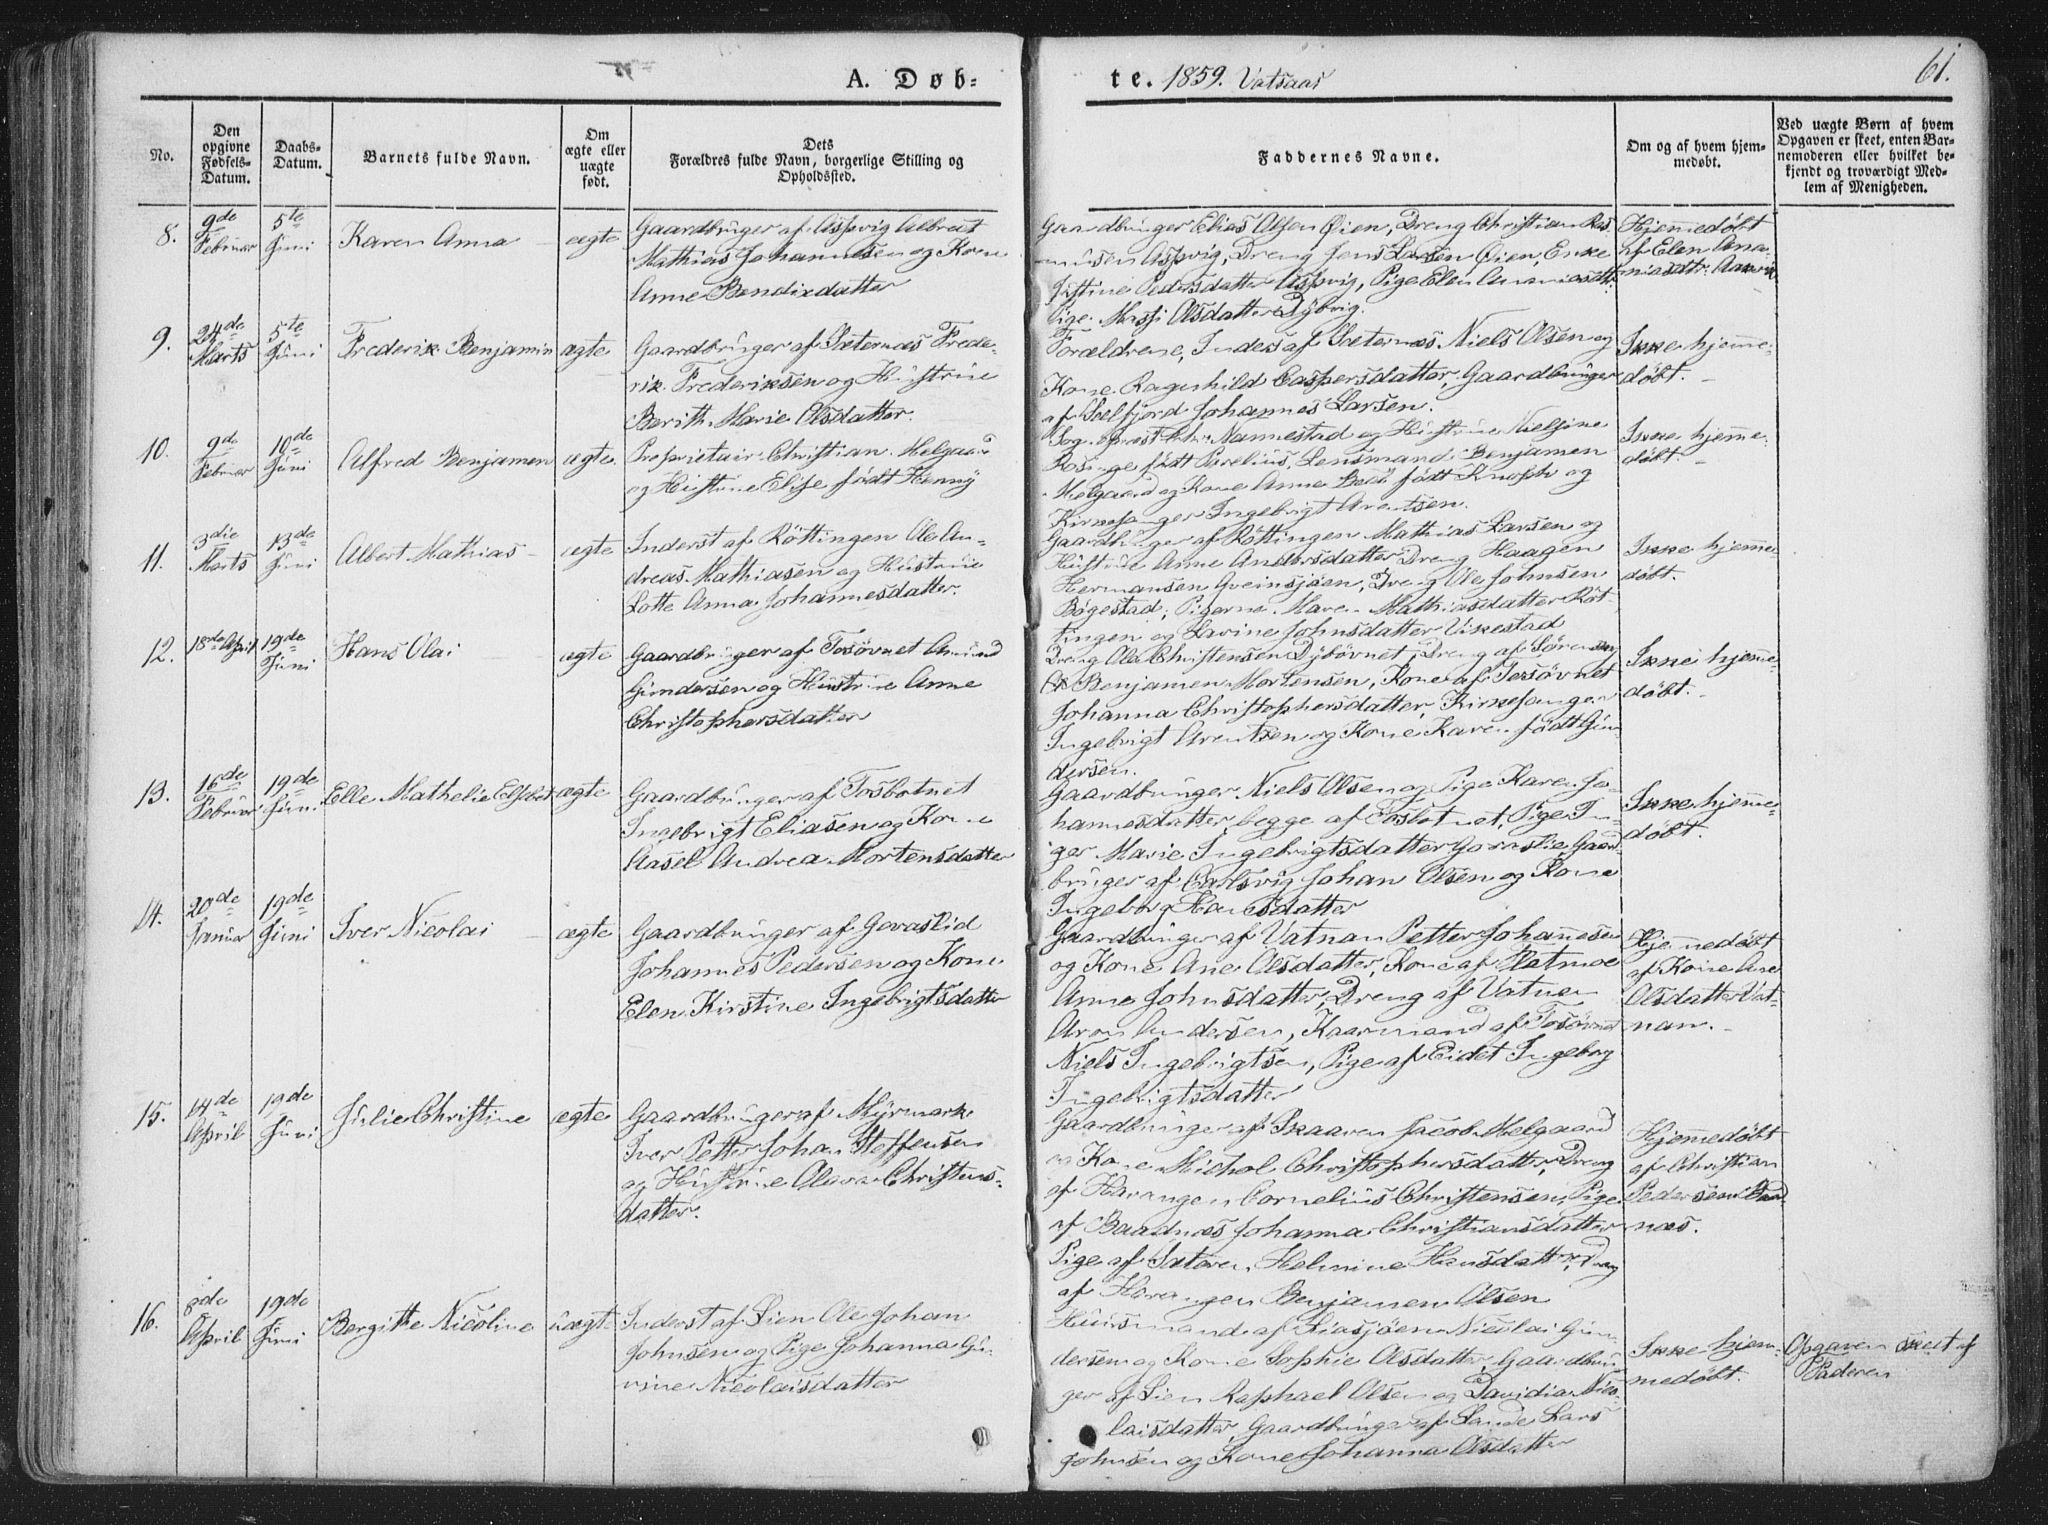 A. Døb=
te. 1859. Vatsaas
61.
No.
Den
opgivne
Fødsels-
Datum.
Daabs-
Datum.
Barnets fulde Navn.
Om
ægte eller
uægte
født.
Dets
Forældres fulde Navn, borgerlige Stilling og
Opholdssted.
Faddernes Navne.
Om og af hvem hjem-
medøbt.
Ved uægte Børn af hvem
Opgaven er skeet, enten Bar-
nemoderen eller hvilket be-
kjendt og troværdigt Med-
lem af Menigheden.
8.
9de
Februar
5te
Juni
Karen Anna
ægte
Gaardbruger af Aspvig Albreit
Mathias Johannesen og Kone
Anne Bendixdatter
Gaardbruger Elias Olsen Øien, Dreng Christian Ras
musen Aspvig, Dreng Jens Larsen Øien, Enke
Justine Pedersdatter Aspvig, Pige Elen Ananiasdtr.
Pige Massi Olsdatter Dybvig.
Hjemmedøbt
af Elen Ana-
niasdtr.
9.
24de
Marts
5te
Juni
Frederik Benjamin
ægte
Gaardbruger af Sæternæs Frede-
rik Frederiksen og Hustrue
Berith Marie Olsdatter.
Forældrene, Inders af Sæternæs Niels Olsen og
Kone Ragnhild Caspersdatter, Gaardbruger
af Johannes Larsen.
Ikke hjemme-
døbt.
10.
9de
Februar
10de
Juni
Alfred Benjamen
ægte
Proprietair Christian Helgaad
og Hustrue Elise født Henny
Sognepræst Nannestad og Hustrue Nielsine
Rosinge født Parelius, Lensmand Benjamen
Helgaard og Kone Anne født Knoph og
Kirkesanger Ingebrigt Arentsen.
Ikke hjemme-
døbt.
11.
3die
Marts
13de
Juni
Albert Mathias
ægte
Inderst af Röttingen Ole An-
dreas Mathiasen og Hustrue
Lotte Anna Johannesdatter.
Gaardbruger af Röttingen Mathias Larsen og
Hustrue Anne Andersdatter, Dreng Haagen
Hermansen Qveinsjöen, Dreng Ole Johnsen
Bøgestad, Pigerne Mare Mathiasdatter Röt
tingen og Lavine Johnsdatter Vikestad
Ikke hjemme-
døbt.
12.
18de April
19de
Juni
Hans Olai
ægte
Gaardbruger af Tosövnet Amund
Gundersen og Hustrue Anne
Christophersdatter
Dreng Ole Christensen Dybövnet, Dreng af
Benjamen Mortensen, Kone af Tosövnet
Johanna Christophersdatter, Kirkesanger
Ingebrigt Arentsen og Kone Karen født Gun
dersen.
Ikke hjemme-
døbt.
13.
16de
Februar
19de
Juni
Elle Mathelie Elsbet
ægte
Gaardbruger af Tosbotnet
Ingebrigt Eliasen og Kone
Aasel Andrea Mortensdatter
Gaardbruger Niels Olsen og Pige Karen Jo-
hannesdatter begge af Tosbotnet, Pige In-
ger Marie Ingebrigtsdatter Goraslie, Gaard
bruger af Carlsvig Johan Olsen og Kone
Ingeborg Hansdatter
Ikke hjemme-
døbt.
14.
20de
Januar
19de
Juni
Iver Nicolai
ægte
Gaardbruger af Goraslid
Johannes Pedersen og Kone
Elen Kirstine Ingebrigtsdatter
Gaardbruger af Vatnan Petter Johannesen
og Kone Ane Olsdatter, Kone af Hatmoe
Anne Johnsdatter, Dreng af Vatnen
Aron Andersen, Kaarmand af Tosövnet
Niels Ingebrigtsen, Pige af Eidet Ingeborg
Ingebrigtsdatter
Hjemmedøbt
af Kone Ane
Olsdatter Vat-
nan.
15.
14de
April
19de
Juni
Julie Christine
ægte
Gaardbruger af Myrmark
Iver Petter Johan Steffensen
og Hustrue Olava Christens-
datter.
Gaardbruger af Skaaren Jacob Helgaard
og Kone Michol Christophersdatter, Dreng
af Harangen Cornelius Christensen, Pige
af Baadnæs Johanna Christiansdatter
Pige af Sæteren Helmine Hansdatter, Dreng
af Harangen Benjamen Olsen
Hjemmedøbt
af Christian
Pedersen Baad
næs.
16.
8de
April
19de
Juni
Bergithe Nicoline
uægte
Inderst af Lien Ole Johan
Johnsen og Pige Johanna Gu-
rine Nicolaisdatter
Huusmand af Liasjöen Nicolai Gun
dersen og Kone Sophie Olsdatter, Gaardbru
ger af Lien Raphael Olsen og Davidia Nico-
laisdatter, Gaardbruger af Lande Lars
Johnsen og Kone Johanna Olsdatter
Ikke hjem-
medøbt.
Opgaven skeet af
Faderen